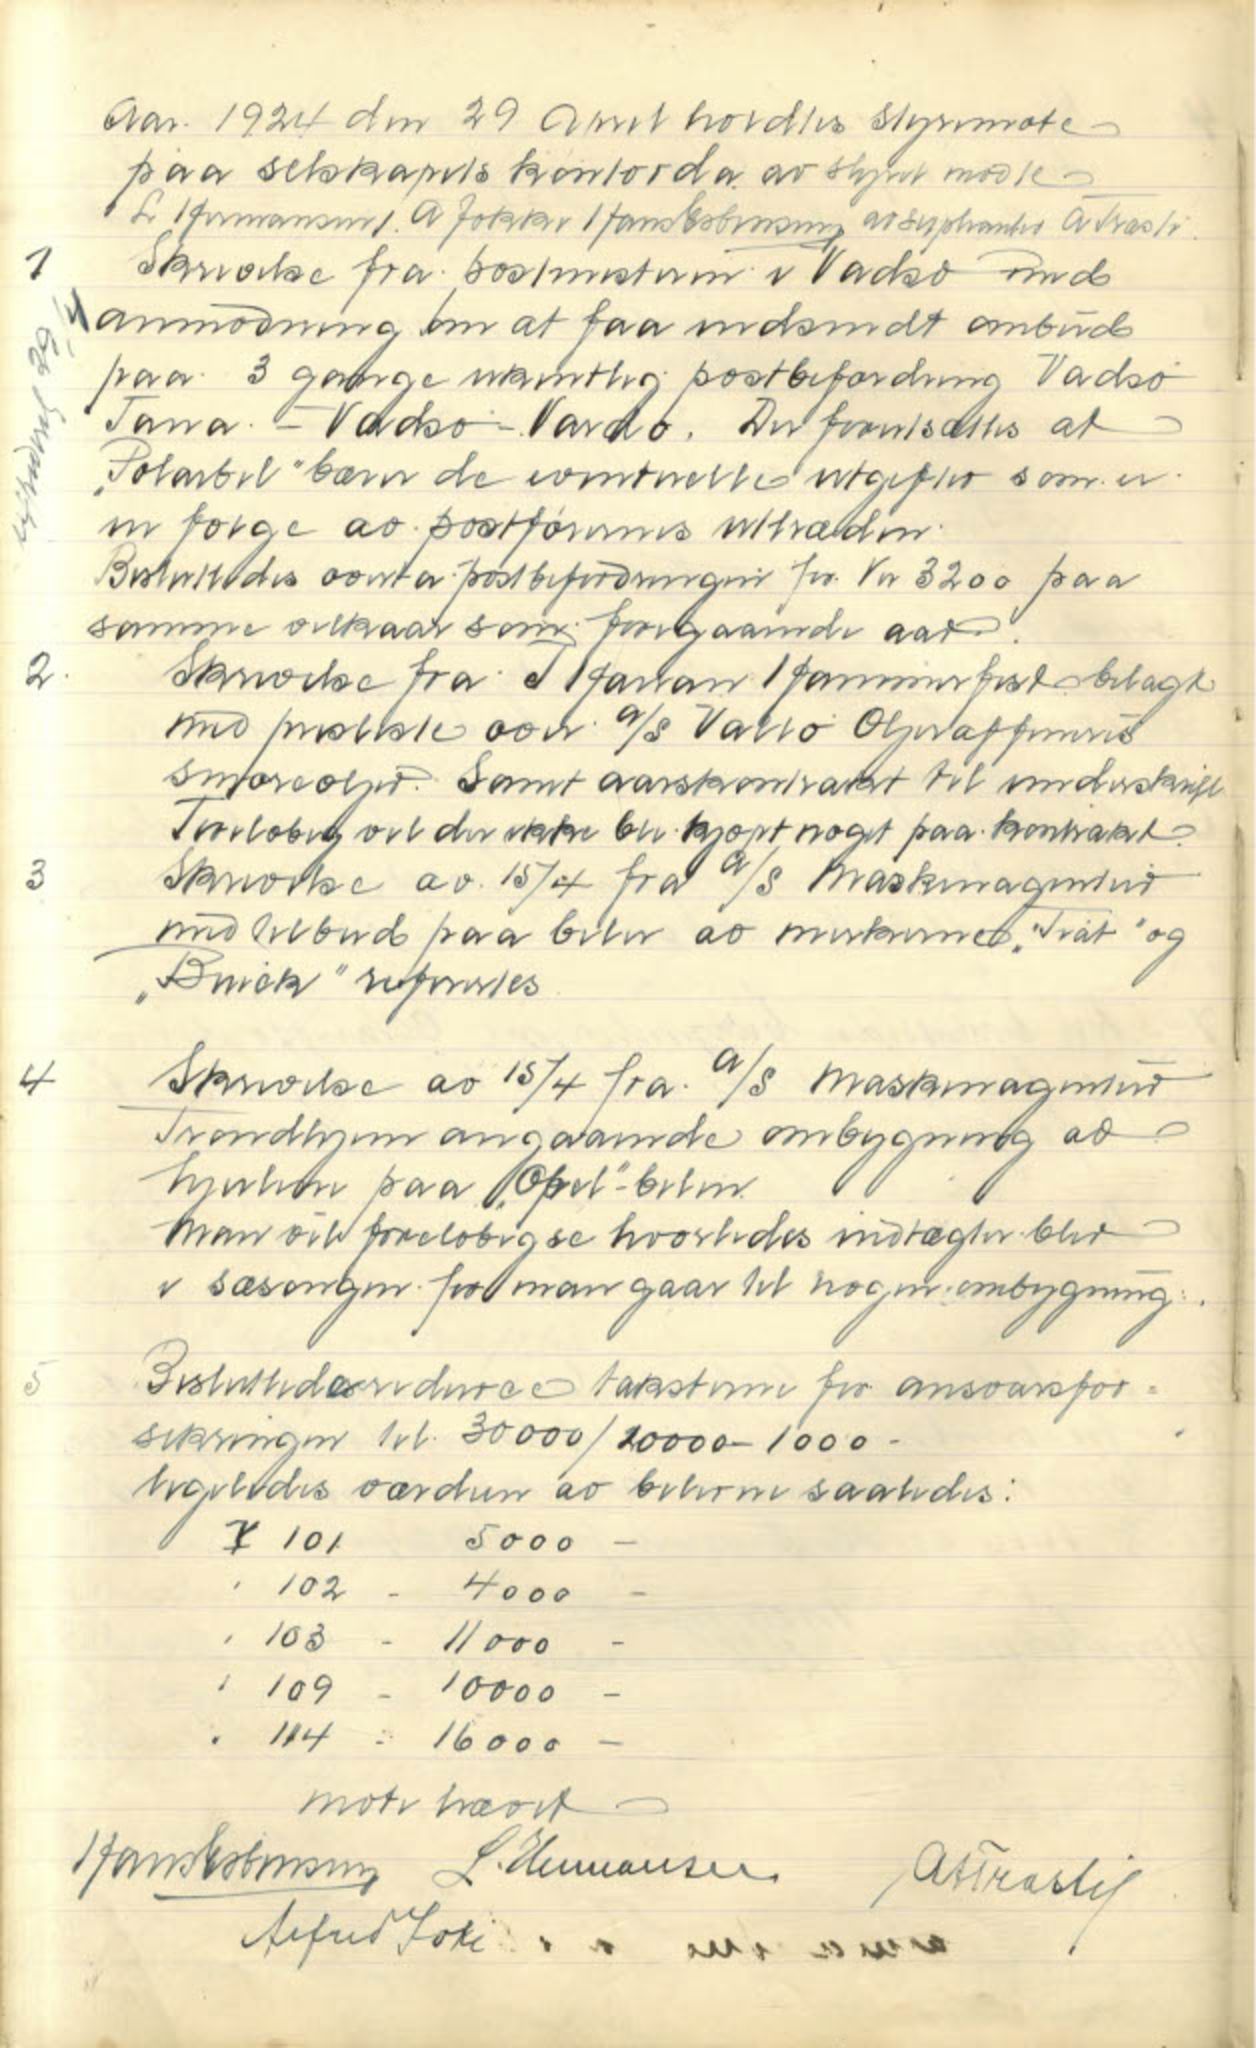 Aar. 1924 den 29 April holdtes Styremøte
paa selskapets kontor da av styret mødte
L Hermansen, A Jokke Hans Esbensen av supleanter A Træsti.
1 Skrivelse fra postmesteren i Vadsø med
anmodning om at faa indsendt anbud
paa 3 gange ukentlig postbefordring Vadsø
Tana – Vadsø – Vardø. Der forutsættes at
„Polarbil" bærer de eventuelle utgifter som er
en følge av postførerens uttræden.
Besluttedes overta postbefordringen for Kr 3200 paa
samme vilkaar som foregaaende aar.
2. Skrivelse fra J Hanan Hammerfest bilagt
med prisliste over A/S Valló Oljeraffineris
smøreoljer. Samt aarskontrakt til underskrift
Foreløbig vil der ikke bli kjøpt noget paa kontrakt.
3 Skrivelse av 15/4 fra A/S Maskinagentur
med tilbud paa biler av merkerne „Fiat" og
„Buick" refereres
4 Skrivelse av 15/4 fra A/S Maskinagentur
Trondhjem angaaende ombygning av
hjulene paa „Opel"-bilen
Man vil foreløbig se hvorledes indtægter blir
i sæsongen før man gaar til nogen ombygning.
5 Besluttedes reducere taksterne for ansvarsfor=
sikringen til 30000/20000– 1000 -
ligeledes værdien av bilerne saaledes:
Y 101 5000 –
" 102 - 4000 –
" 103 - 11000 –
" 109 - 10000 –
" 114 - 16000 –
møte hævet
Hans Esbensen L. Hermansen A Træsti
Alfred Joki